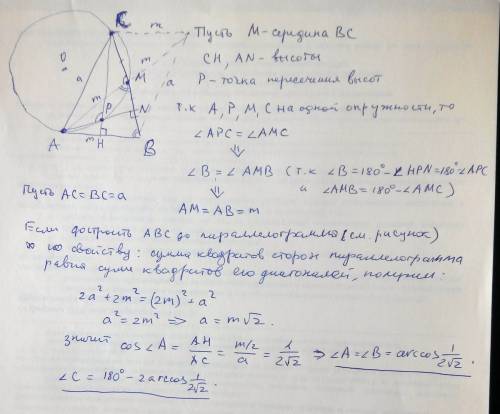 C
m
m
a
M
O
a
m
P
N
A
m
H
B
Пусть M-середина BC
CH, AN - высоты
P - точка пересечения высот
т.к A, P, M, C на одной окружности, то
∠APC = ∠AMC
⇓
∠B = ∠AMB (т.к ∠B = 180° - ∠HPN = 180° - ∠APC
и ∠AMB = 180° - ∠AMC)
⇓
AM = AB = m
Пусть AC = BC = a
Если достроить ABC до параллелограмма (см. рисунок)
по свойству: сумма квадратов сторон параллелограмма
равна сумме квадратов его диагоналей, получим:
2a² + 2m² = (2m)² + a²
a² = 2m² ⇒ a = m√2.
значит cos∠A = AH/AC = (m/2)/a = 1/(2√2) ⇒ ∠A = ∠B = arccos 1/(2√2)
∠C = 180° - 2arccos 1/(2√2).